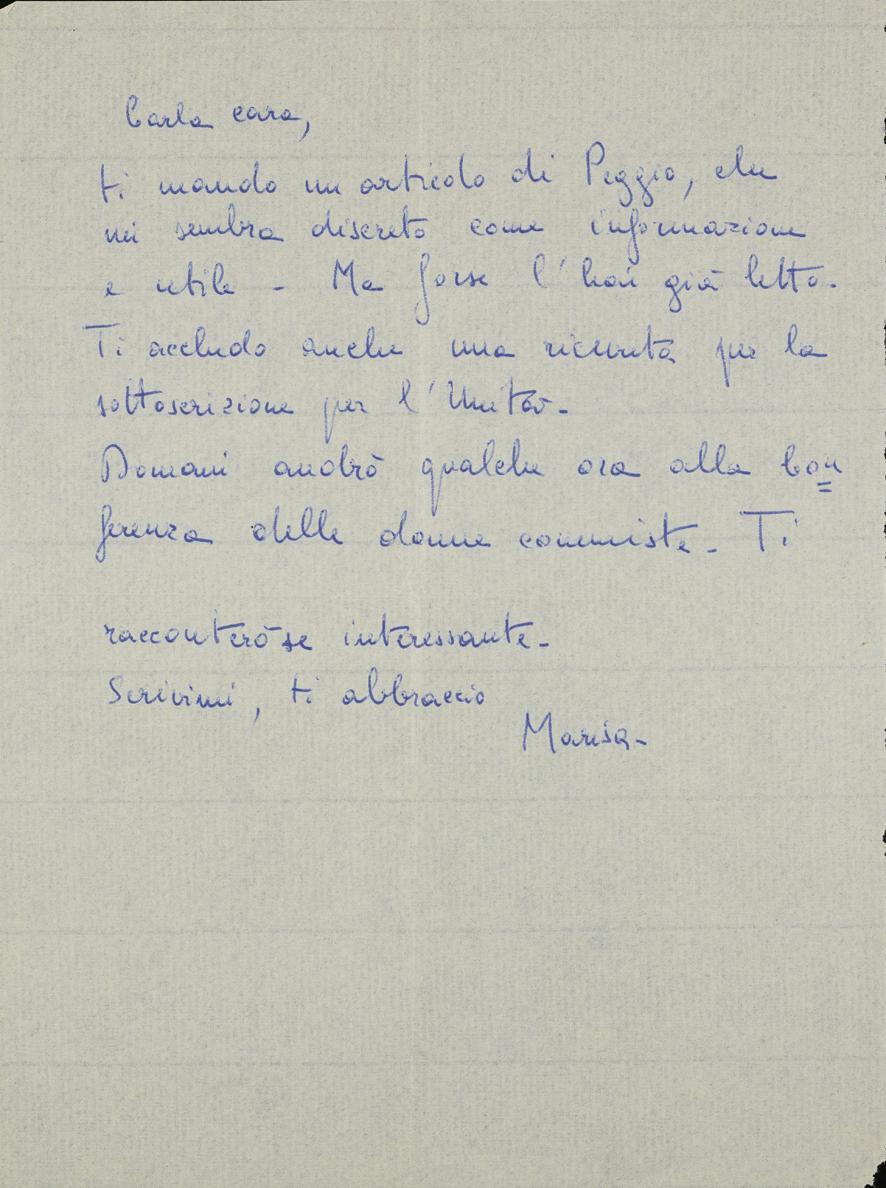 Carla cara,
ti mando un articolo di Peggio, che
mi sembra discreto come informazione
e utile - Ma forse l'hai già letto.
Ti accludo anche una ricevuta per la
sottoscrizione per l'Unità -
Domani andrò qualche ora alla Con=
ferenza delle donne comuniste - Ti
racconterò se interessante -
Scrivimi, ti abbraccio
Marisa -